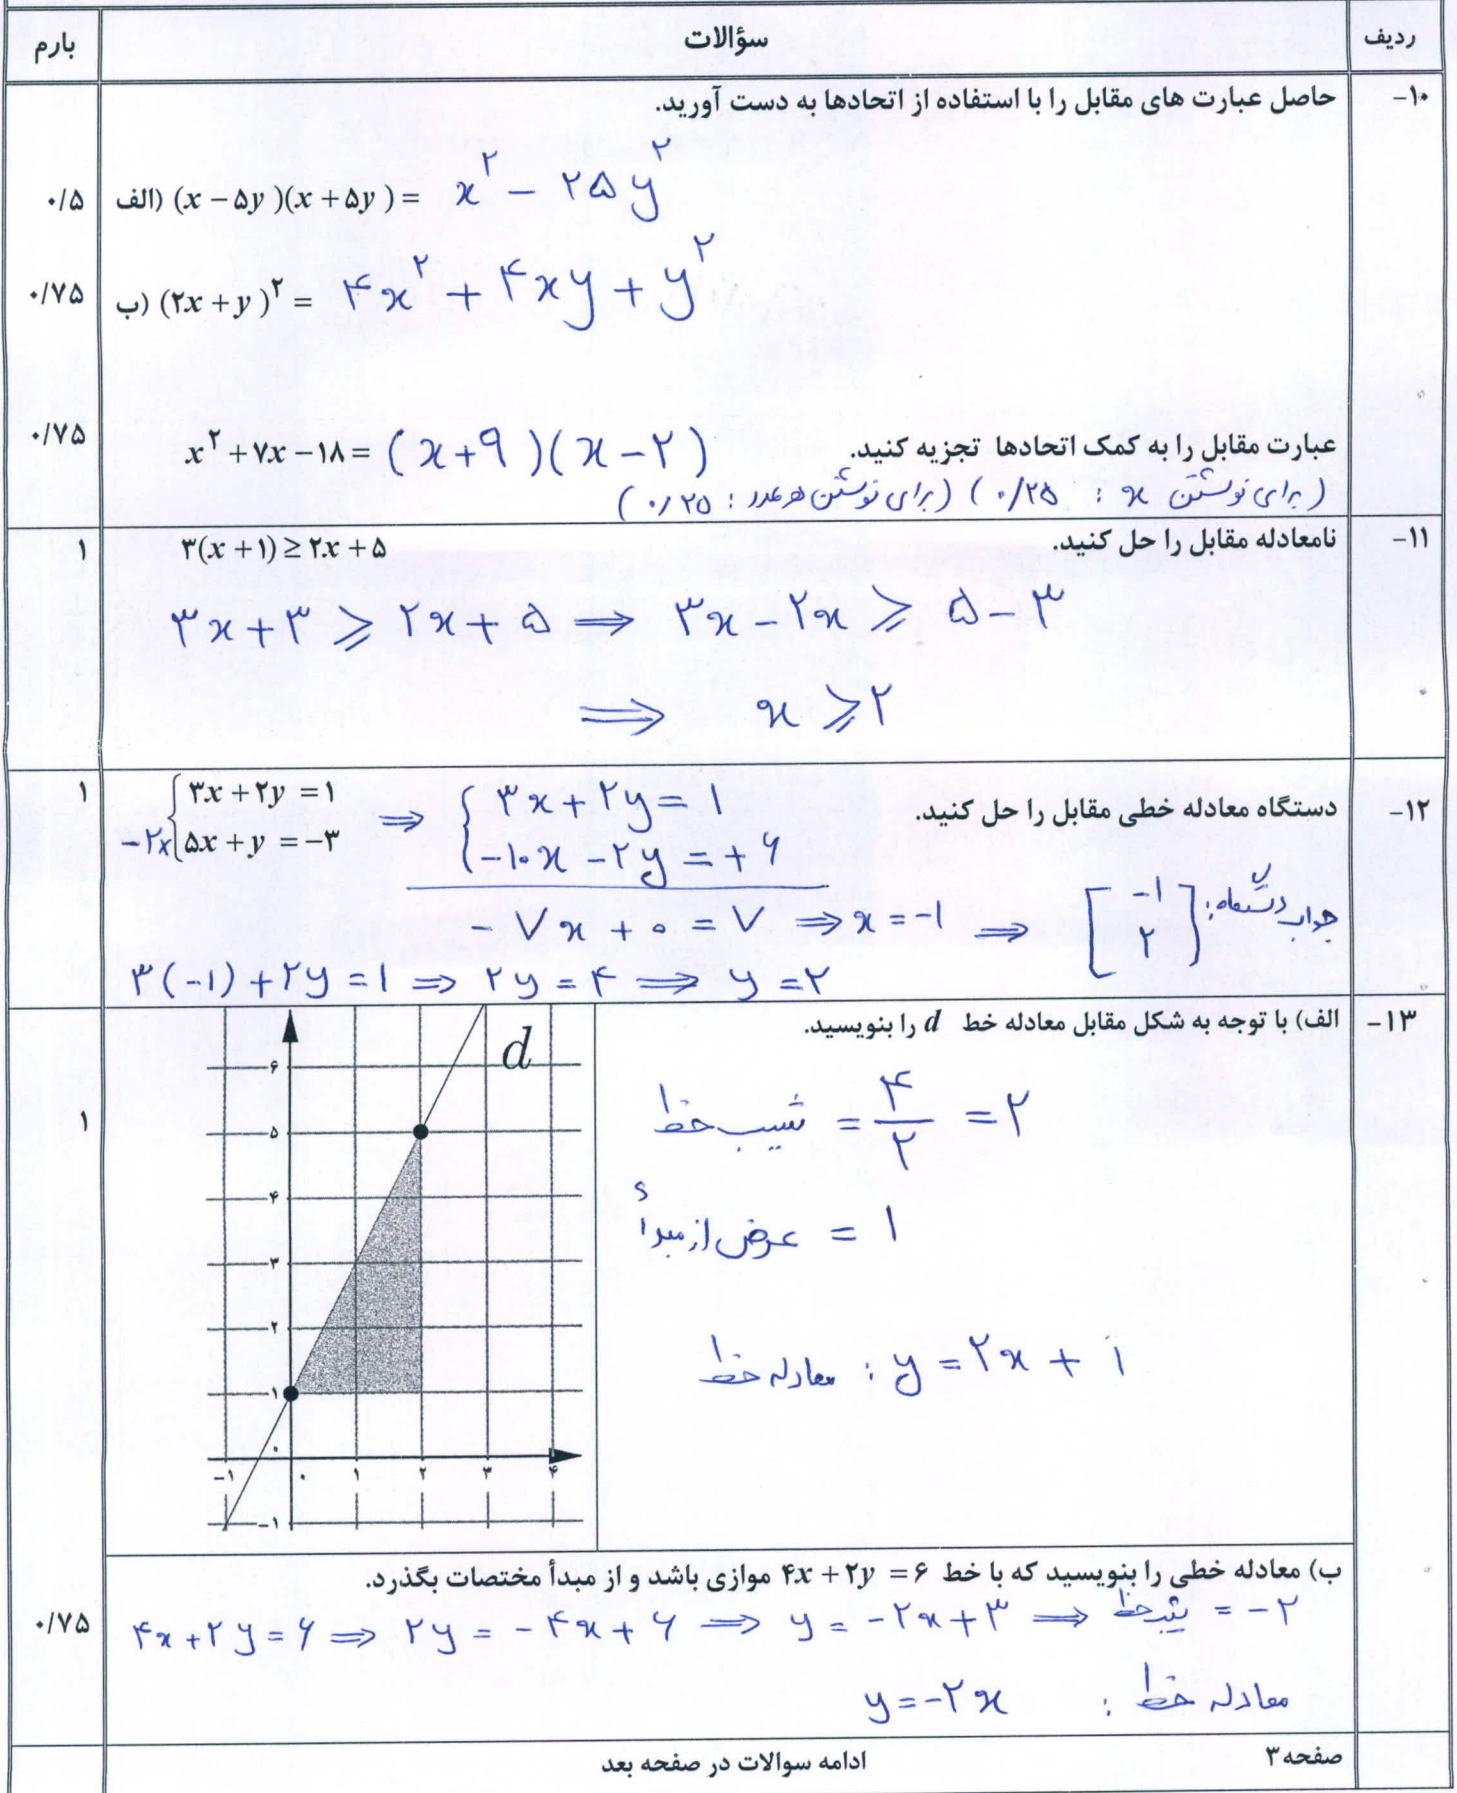 ردیف سؤالات بارم
۱۰- حاصل عبارت های مقابل را با استفاده از اتحادها به دست آورید.
الف) (x − ۵y)(x + ۵y) = x^۲ − ۲۵y^۲ ۰/۵
ب) (۲x + y)^۲ = ۴x^۲ + ۴xy + y^۲ ۰/۷۵
عبارت مقابل را به کمک اتحادها تجزیه کنید. x^۲ + ۷x − ۱۸ = (x+۹)(x−۲) ۰/۷۵
(برای نوشتن x : ۰/۲۵) (برای نوشتن هر عدد : ۰/۲۵)
۱۱- نامعادله مقابل را حل کنید. ۳(x + ۱) ≥ ۲x + ۵ ۱
۳x + ۳ ≥ ۲x + ۵ ⟹ ۳x − ۲x ≥ ۵ − ۳
⟹ x ≥ ۲
۱۲- دستگاه معادله خطی مقابل را حل کنید. ۱
{ ۳x + ۲y = ۱ ⟹ { ۳x + ۲y = ۱
−۲× { ۵x + y = −۳ { −۱۰x − ۲y = +۶
−۷x + ۰ = ۷ ⟹ x = −۱ ⟹ جواب دستگاه: [−۱ ۲]
۳(−۱) + ۲y = ۱ ⟹ ۲y = ۴ ⟹ y = ۲
۱۳- الف) با توجه به شکل مقابل معادله خط d را بنویسید. ۱
شیب خط = ۴/۲ = ۲
عرض از مبدأ = ۱
معادله خط : y = ۲x + ۱
d
۶
۵
۴
۳
۲
۱
۰
−۱ ۰ ۱ ۲ ۳ ۴
−۱
ب) معادله خطی را بنویسید که با خط ۴x + ۲y = ۶ موازی باشد و از مبدأ مختصات بگذرد. ۰/۷۵
۴x + ۲y = ۶ ⟹ ۲y = −۴x + ۶ ⟹ y = −۲x + ۳ ⟹ شیب خط = −۲
معادله خط : y = −۲x
صفحه ۳ ادامه سوالات در صفحه بعد